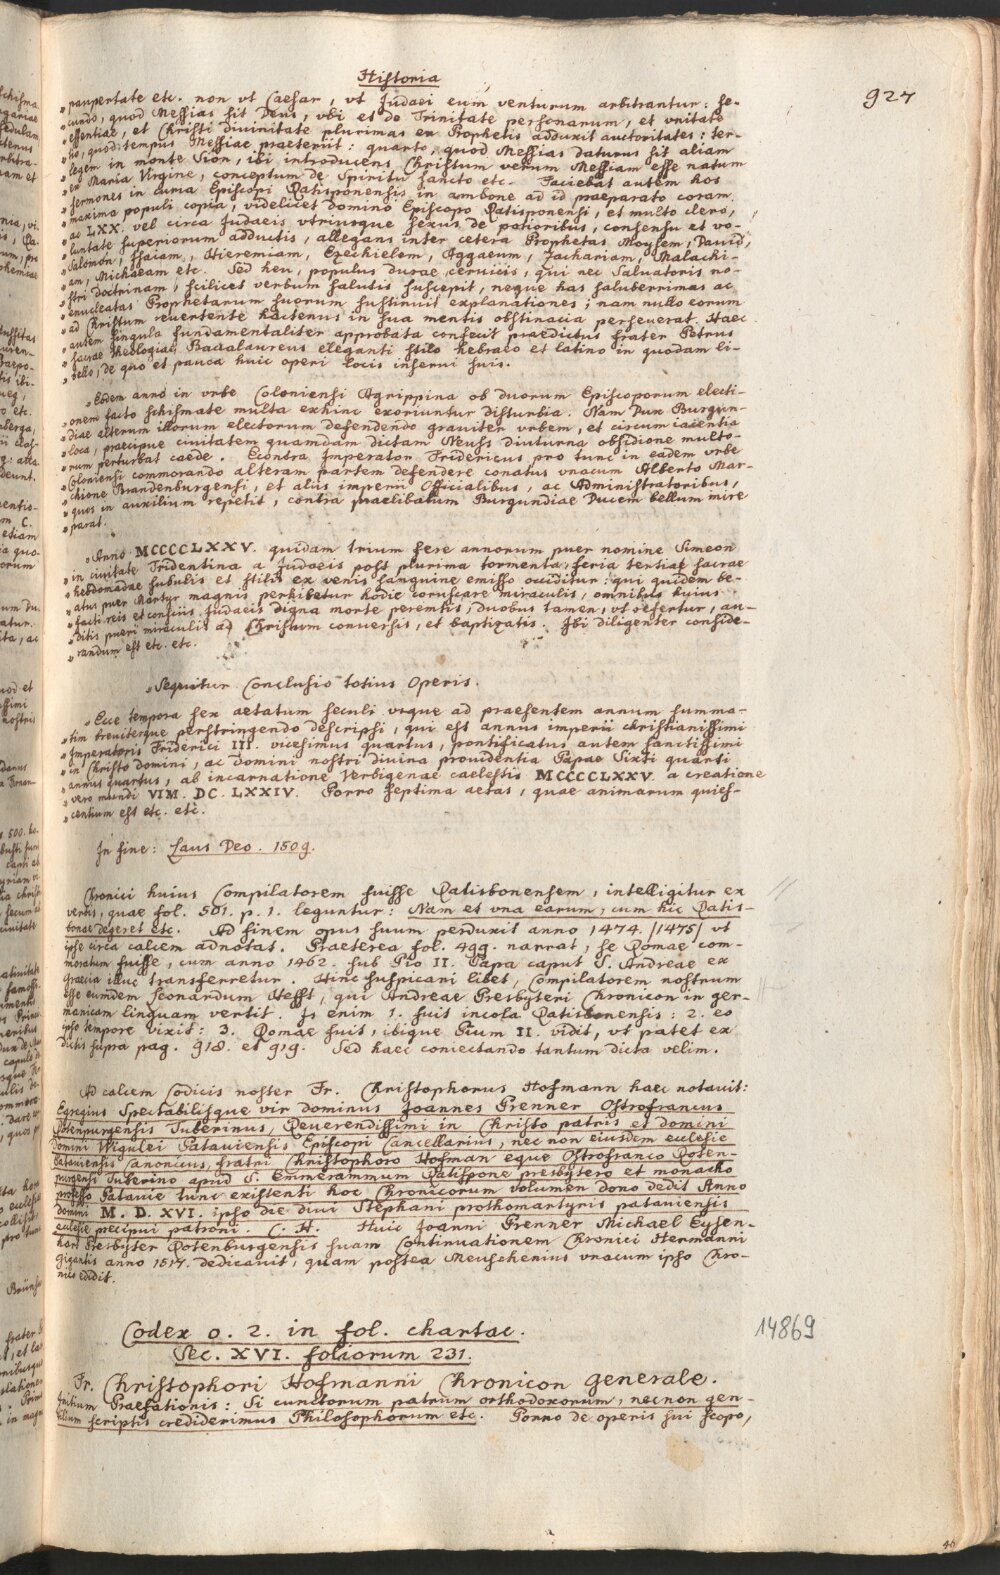 Historia
927
„ paupertate etc. non vt Caesar, vt Judaei eum venturum arbitrantur: se-
„ cundo, quod Messias sit Deus, vbi et de Trinitate personarum, et vnitate
„ essentiae, et Christi diuinitate plurimas ex Prophetis adduxit auctoritates: ter-
„ tio, quod tempus Messiae praeteriit: quarto, quod Messias daturus sit aliam
„ legem in monte Sion, ibi introducens Christum verum Messiam esse natum
„ ex Maria Virgine, conceptum de Spiritu sancto etc. Faciebat autem hos
„ sermones in curia Episcopi Ratisponensis in ambone ad id praeparato coram
„ maxima populi copia, videlicet domino Episcopo Ratisponensi, et multo clero,
„ ac LXX. vel circa Judaeis vtriusque sexus de potioribus, consensu et vo-
„ luntate superiorum adductis, allegans inter cetera Prophetas Moysem, Dauid,
„ Salomon, Isaiam, Hieremiam, Ezechielem, Aggaeum, Zachariam, Malachi-
„ am, Michaeam etc. Sed heu, populus durae ceruicis, qui nec Saluatoris no-
„ stri doctrinam, scilicet verbum salutis suscepit, neque has saluberrimas ac
„ enucleatas Prophetarum suorum sustinuit explanationes; nam nullo eorum
„ ad Christum reuertente hactenus in sua mentis obstinacia perseuerat. Haec
„ autem singula fundamentaliter approbata confecit praedictus frater Petrus
„ sacrae theologiae Baccalaureus eleganti stilo hebraeo et latino in quodam li-
„ bello, de quo et pauca huic operi locis inserui suis.
„ Eodem anno in vrbe Coloniensi Agrippina ob duorum Episcoporum electi-
„ onem facto schismate multa exhinc exoriuntur disturbia. Nam Dux Burgun-
„ diae alterum illorum electorum defendendo grauiter vrbem, et circum iacentia
„ loca, praecipue ciuitatem quamdam dictam Neuss diuturna obsidione multo-
„ rum perturbat caede. Econtra Imperator Fridericus pro tunc in eadem vrbe
„ Coloniensi commorando alteram partem defendere conatus vnacum Alberto Mar-
„ chione Brandenburgensi, et aliis imperii Officialibus, ac Administratoribus,
„ quos in auxilium repetit, contra praelibatum Burgundiae Ducem bellum mire
„ parat.
„ Anno MCCCCLXXV. quidam trium fere annorum puer nomine Simeon
„ in ciuitate Tridentina a Judaeis post plurima tormenta feria tertiae sacrae
„ hebdomadae subulis et stilis ex venis sanguine emisso occiditur: qui quidem be-
„ atus puer Martyr magnis perhibetur hodie coruscare miraculis, omnibus huius
„ facti reis et consciis Judaeis digna morte peremtis, duobus tamen, vt refertur, au-
„ ditis pueri miraculis ad Christum conuersis, et baptizatis. Ibi diligenter conside-
„ randum est etc. etc.
„ Sequitur Conclusio totius Operis.
„ Ecce tempora sex aetatum seculi vsque ad praesentem annum summa-
„ tim breuiterque perstringendo descripsi, qui est annus imperii christianissimi
„ Imperatoris Friderici III. vicesimus quartus, pontificatus autem sanctissimi
„ in Christo domini, ac domini nostri diuina prouidentia Papae Sixti quarti
„ annus quartus, ab incarnatione Verbigenae caelestis MCCCCLXXV. a creatione
„ vero mundi VIM. DC. LXXIV. Porro septima aetas, quae animarum quies-
„ centium est etc. etc.
In fine: Laus Deo. 1509.
Chronici huius Compilatorem fuisse Ratisbonensem, intelligitur ex
verbis, quae fol. 501. p. 1. leguntur: Nam et vna earum, cum hic Ratis-
bonae degeret etc. Ad finem opus suum perduxit anno 1474. /1475/ vt
ipse circa calcem adnotat. Praeterea fol. 499. narrat, se Romae com-
moratum fuisse, cum anno 1462. sub Pio II. Papa caput S. Andreae ex
Graecia illuc transferretur. Hinc suspicari libet, Compilatorem nostrum
esse eumdem Leonardum Hefft, qui Andreae Presbyteri Chronicon in ger-
manicam linguam vertit. Is enim 1. fuit incola Ratisbonensis: 2. eo
ipso tempore vixit: 3. Romae fuit, ibique Pium II. vidit, vt patet ex
dictis supra pag. 918. et 919. Sed haec coniectando tantum dicta velim.
Ad calcem Codicis noster Fr. Christophorus Hofmann haec notauit:
Egregius Spectabilisque vir dominus Joannes Prenner Ostrofrancus
Rotenpurgensis Tuberinus, Reuerendissimi in Christo patris et domini
domini Wigulei Patauiensis Episcopi Cancellarius, nec non eiusdem ecclesie
Patauiensis Canonicus, fratri Christophoro Hofman eque Ostrofranco Roten-
purgensi Tuberino apud S. Emmerammum Ratispone presbytero et monacho
professo Patauie tunc existenti hoc Chronicorum volumen dono dedit Anno
domini M. D. XVI. ipso die diui Stephani prothomartyris patauiensis
ecclesie precipui patroni. C. H. Huic Joanni Prenner Michael Eysen-
hart Presbyter Rotenburgensis suam Continuationem Chronici Hermanni
Gigantis anno 1517. dedicauit, quam postea Meuschenius vnacum ipso Chro-
nico edidit.
Codex o. 2. in fol. chartac.
Sec. XVI. foliorum 231.
14869
Fr. Christophori Hofmanni Chronicon generale.
Initium Praefationis: Si cunctorum patrum orthodoxorum, nec non gen-
tilium scriptis crediderimus Philosophorum etc. Porro de operis sui scopo,